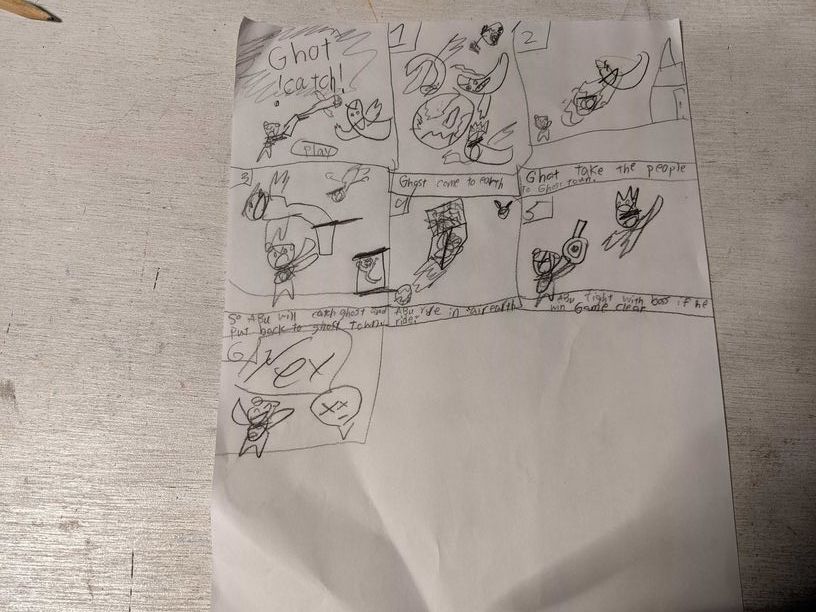 Ghot
!catch!
play
1
Ghost come to earth
2
Ghot take the people
to Ghost town.
3
So ABu will catch ghost and
put back to ghost town
4
ABu ride in
5
ABu fight with boss if he
win Game clear
6